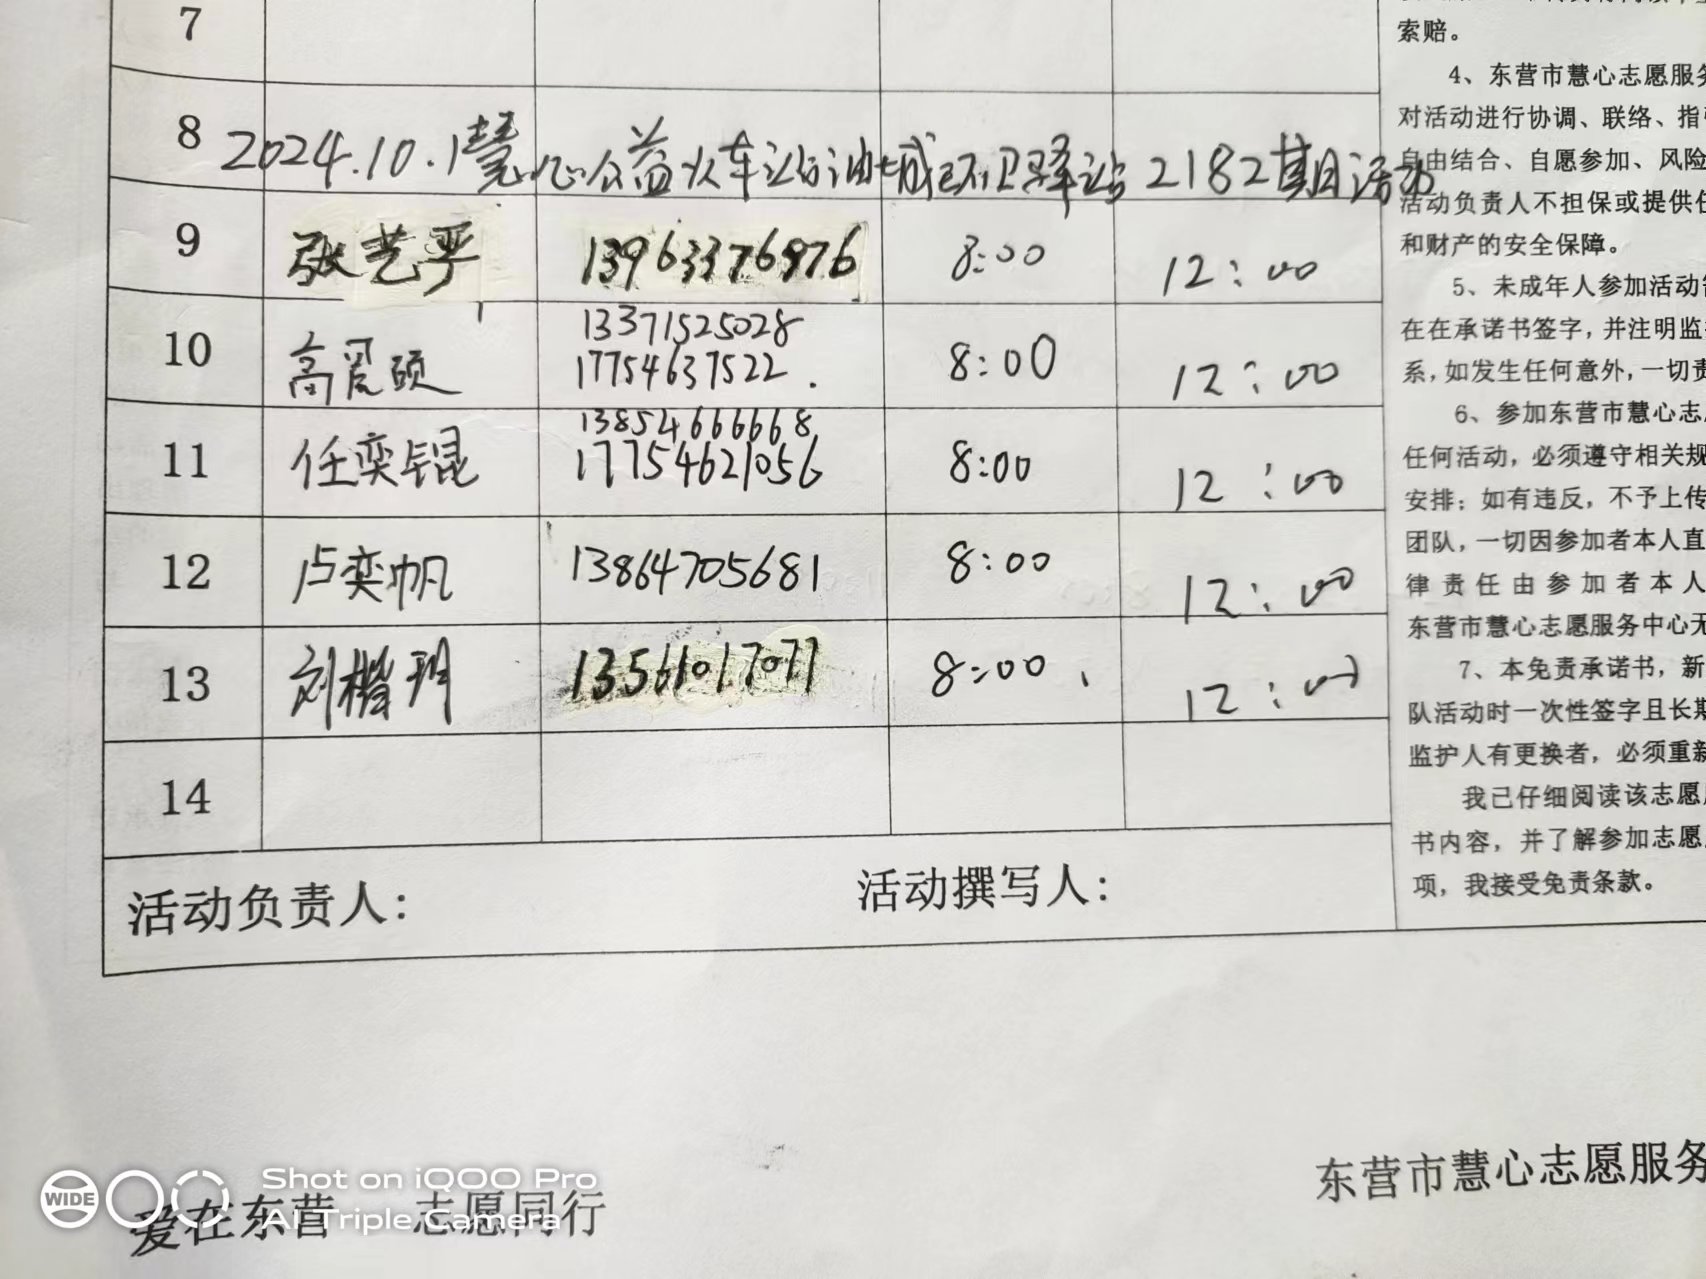 7
索赔。
4、东营市慧心志愿服务
8 2024.10.1慧心公益火车站油城环卫驿站2182期活动
对活动进行协调、联络、指
自由结合、自愿参加、风险
活动负责人不担保或提供任
和财产的安全保障。
9 张艺严 8:00 12:00
5、未成年人参加活动
在在承诺书签字，并注明监
系，如发生任何意外，一切责
10 13371525028
17754637522. 8:00 12:00
6、参加东营市慧心志
任何活动，必须遵守相关规
安排；如有违反，不予上传
团队，一切因参加者本人直
律责任由参加者本人
东营市慧心志愿服务中心无
11 任奕锟 13854666668
17754621056 8:00 12:00
12 卢奕帆 13864705681 8:00 12:00
13 刘楷玥 13561017077 8:00 12:00
7、本免责承诺书，新
队活动时一次性签字且长期
监护人有更换者，必须重新
14
我已仔细阅读该志愿
书内容，并了解参加志愿
项，我接受免责条款。
活动负责人： 活动撰写人：
东营市慧心志愿服务
爱在东营 志愿同行
WIDE
Shot on iQOO Pro
AI Triple Camera